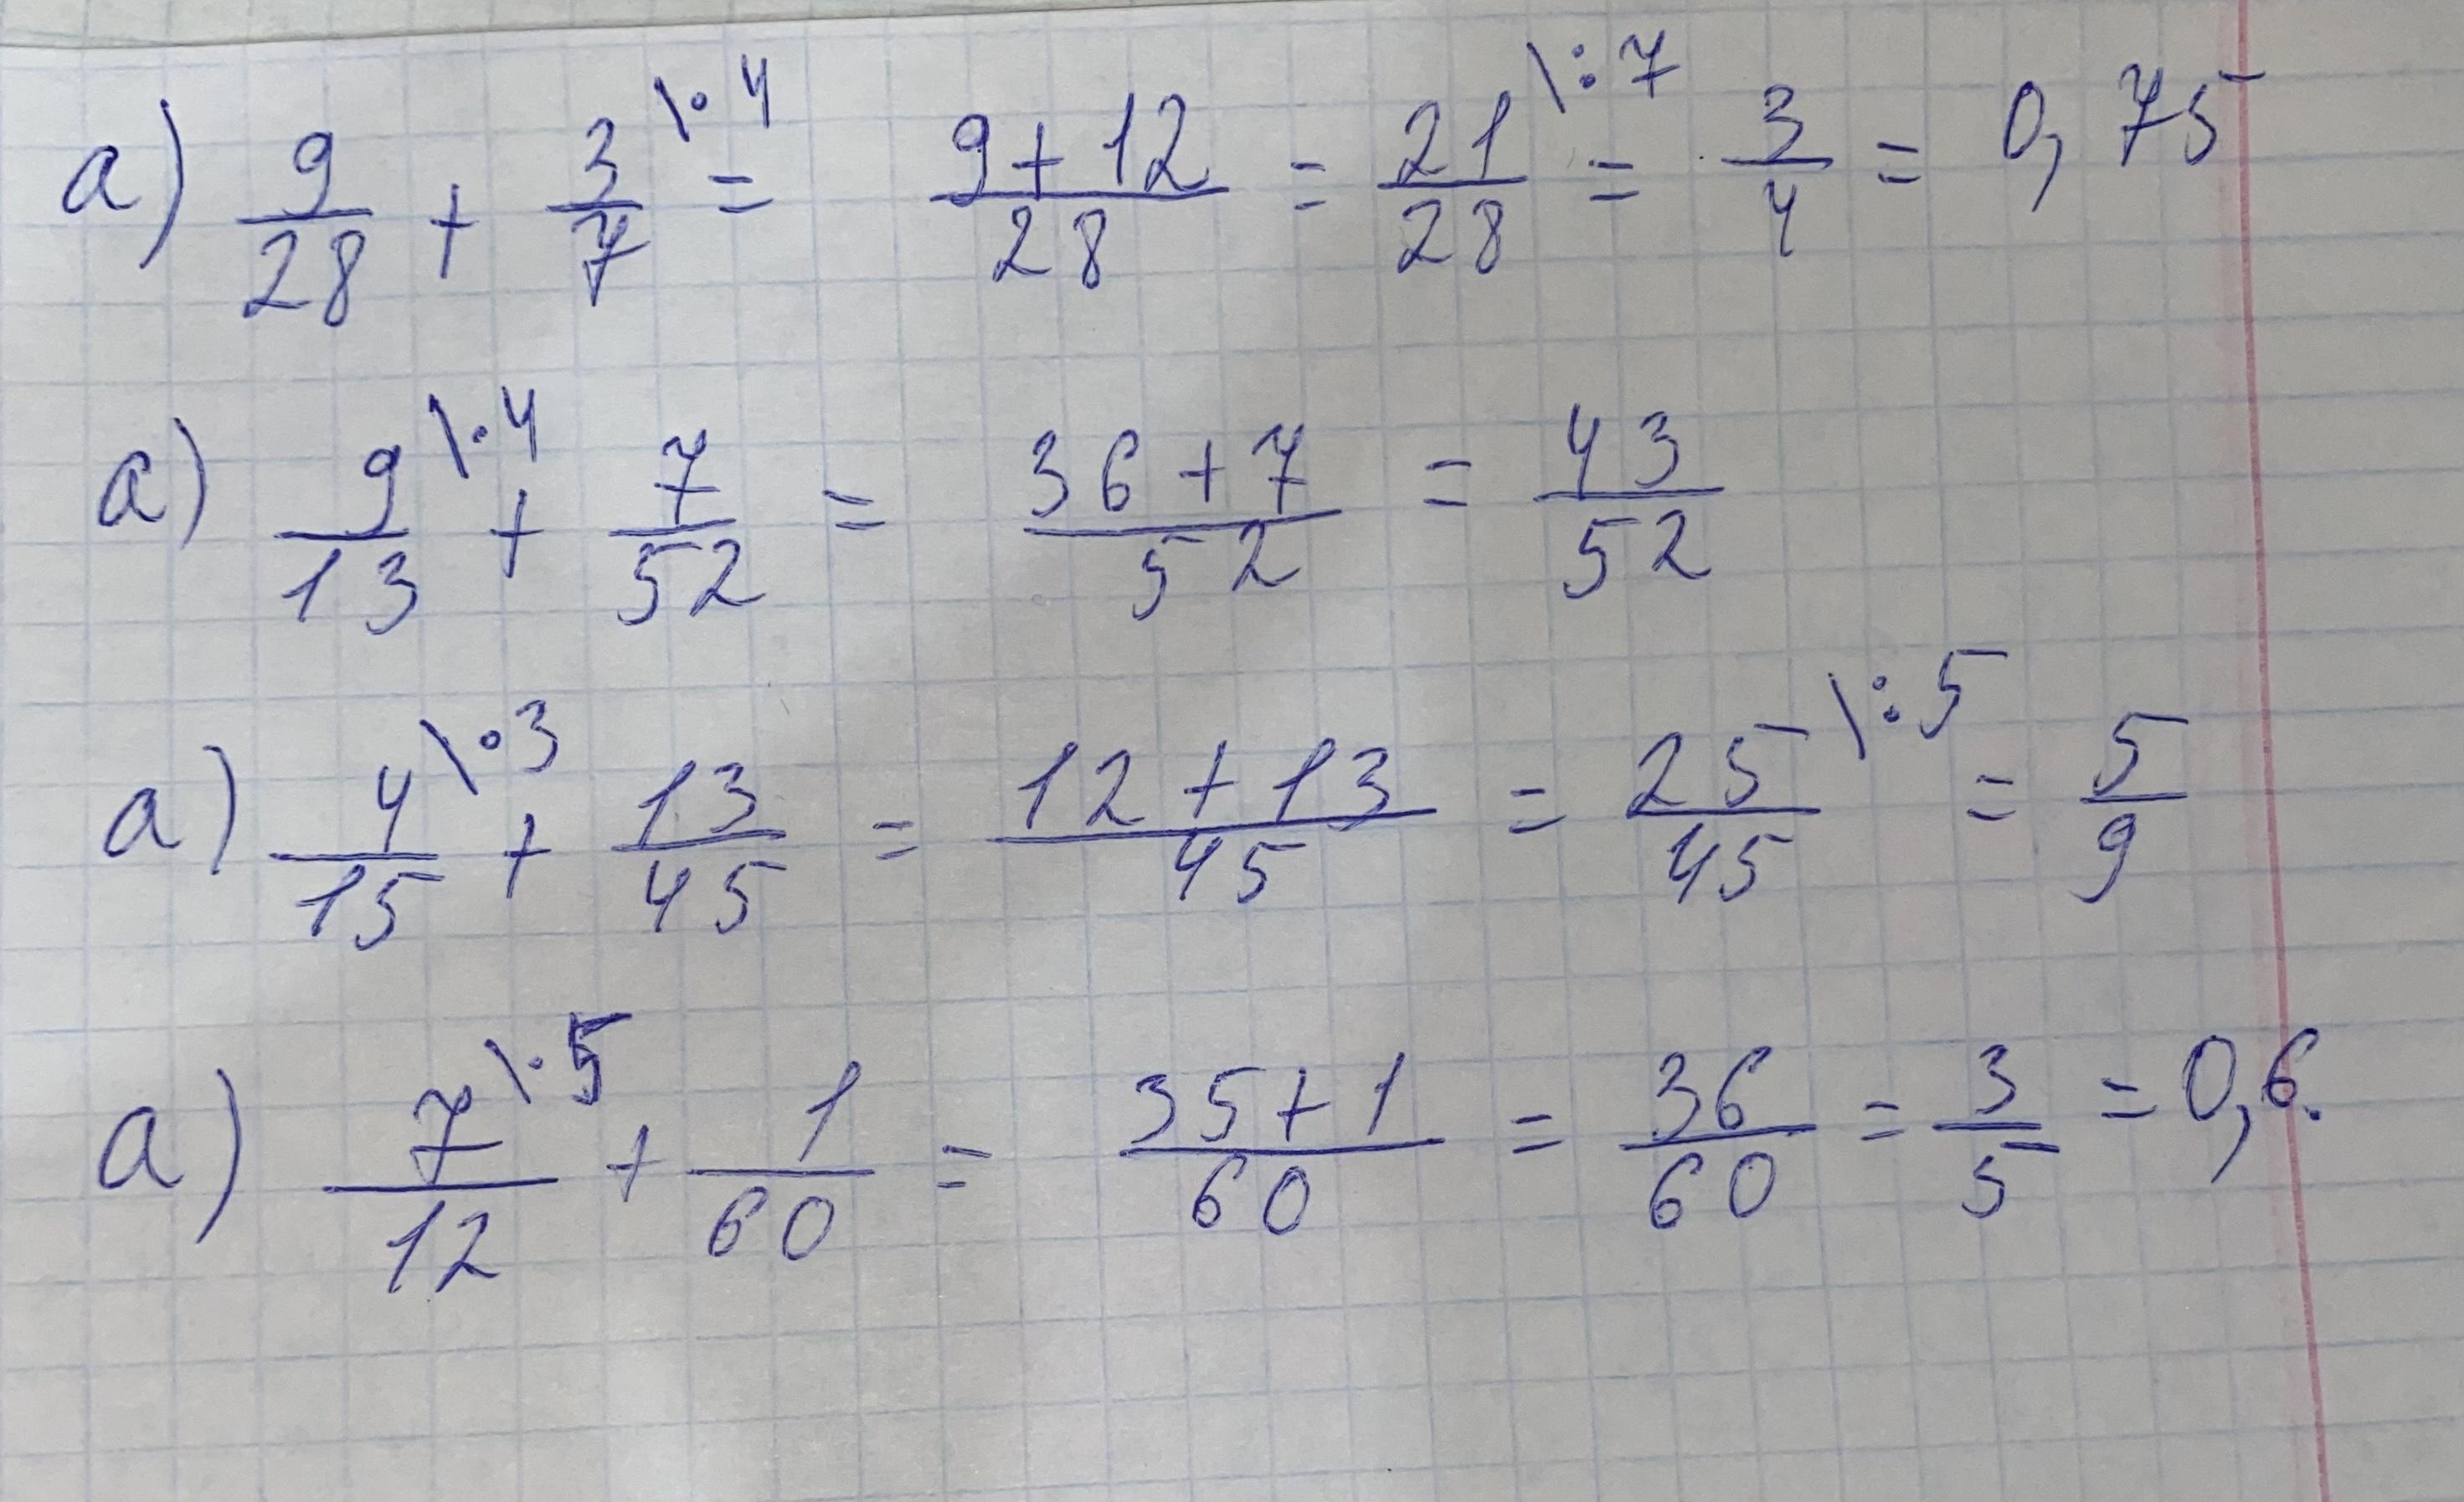 а) 9/28 + 3/7 \·4 = (9+12)/28 = 21/28 \:7 = 3/4 = 0,75
а) 9/13 \·4 + 7/52 = (36+7)/52 = 43/52
а) 4/15 \·3 + 13/45 = (12+13)/45 = 25/45 \:5 = 5/9
а) 7/12 \·5 + 1/60 = (35+1)/60 = 36/60 = 3/5 = 0,6.